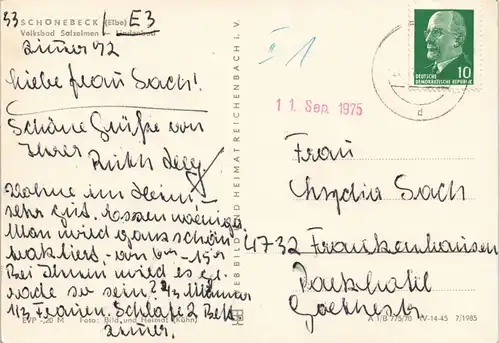 33
E3
SCHÖNEBECK (Elbe)
Volksbad Salzelmen / Lindenbad
Zimmer 42
Liebe Frau Sach!
Schöne Grüße von
Ihrer
Ruth
Wohne im Heim
sehr gut. Essen wenig
Man wird ganz schön
von 6ºº - 15ºº
Bei Ihnen wird es ge-
rade so sein? 2/3 Männer
1/3 Frauen. Schlafe 2 Bett
zimmer.
EVP -,20 M Foto: Bild und Heimat (Kühn)
VEB BILD UND HEIMAT REICHENBACH i. V.
II 1
11. Sep. 1975
DEUTSCHE
DEMOKRATISCHE REPUBLIK
10
d
Frau
Lydia Sach
4732 Frankenhausen
Goethestr
A 1/B 775/70 IV-14-45 7/1985